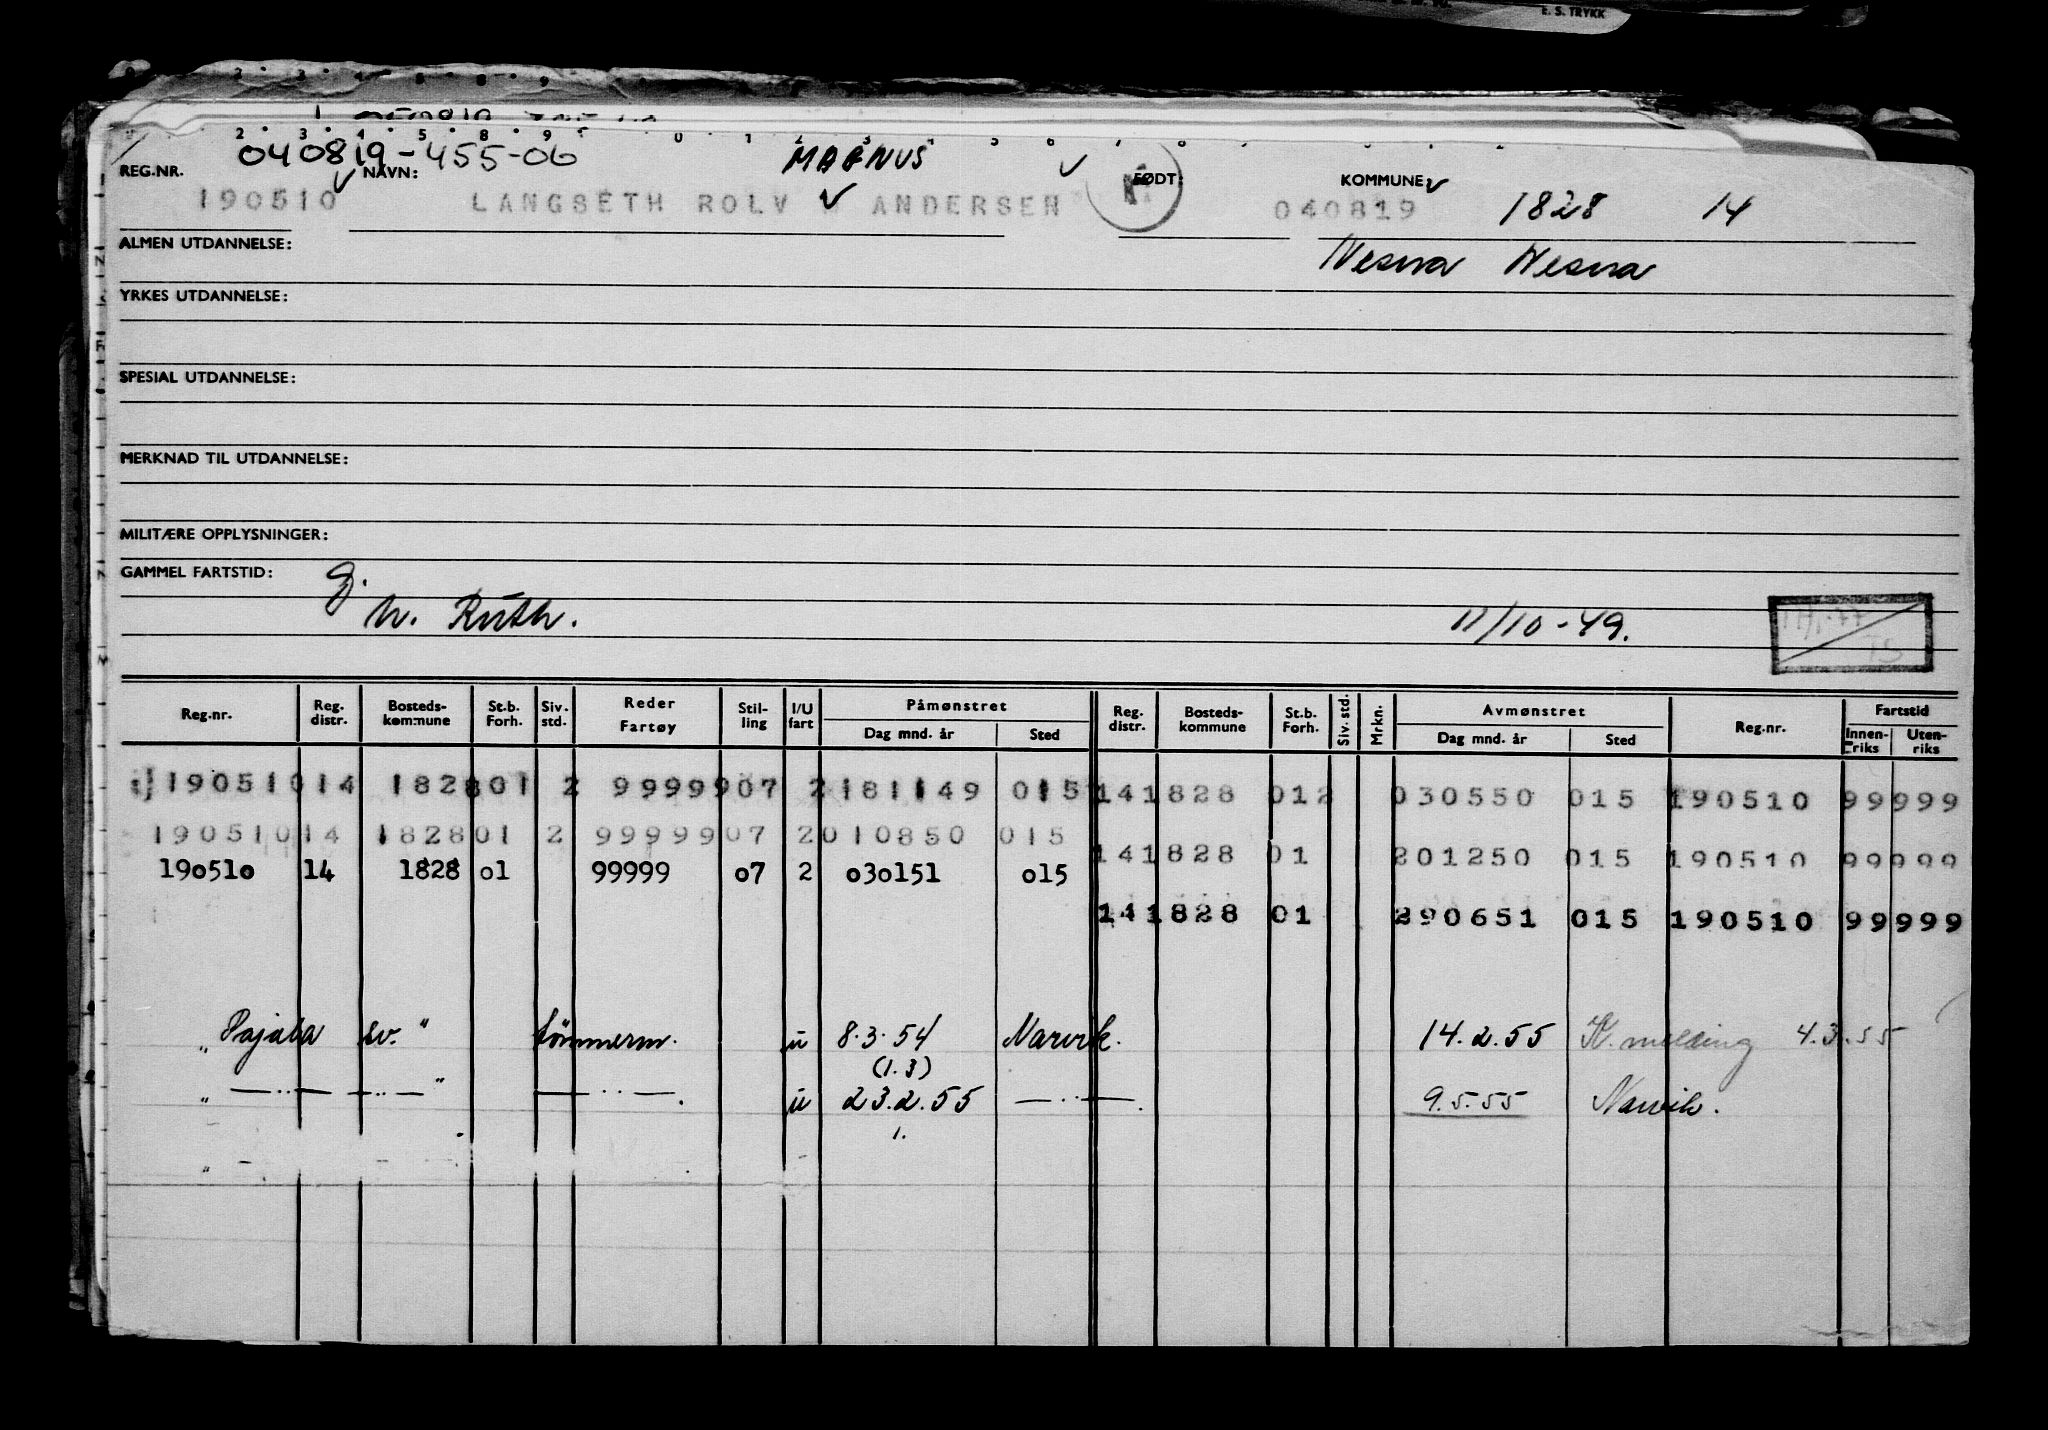 E. S. TRYKK
040819-455-06 MAGNUS
REG.NR. NAVN: FØDT: KOMMUNE
190510 LANGSETH ROLV M ANDERSEN 040819 1828 14
ALMEN UTDANNELSE: Nesna Nesna
YRKES UTDANNELSE:
SPESIAL UTDANNELSE:
MERKNAD TIL UTDANNELSE:
MILITÆRE OPPLYSNINGER:
GAMMEL FARTSTID: g.
h. Ruth. 11/10-49.
Reg.nr. Reg. distr. Bosteds-kommune St.b. Forh. Siv. std. Reder Fartøy Stil-ling I/U fart Påmønstret Dag mnd. år Sted Reg. distr. Bosteds-kommune St.b. Forh. Siv. std. Mrkn. Avmønstret Dag mnd. år Sted Reg.nr. Fartstid Innen-riks Uten-riks
190510 14 1828 01 2 99999 07 2 181149 015 14 1828 01 2 030550 015 190510 99 999
190510 14 1828 01 2 99999 07 2 010850 015
14 1828 01 201250 015 190510 99 999
190510 14 1828 01 99999 07 2 030151 015
14 1828 01 290651 015 190510 99 999
" Pajala sv. " tömmerm. u 8.3.54 Narvik. 14.2.55 K. melding 4.3.55
(1.3)
" —..— —..— " —..—. u 23.2.55 —..—. 9.5.55 Narvik.
1.
"